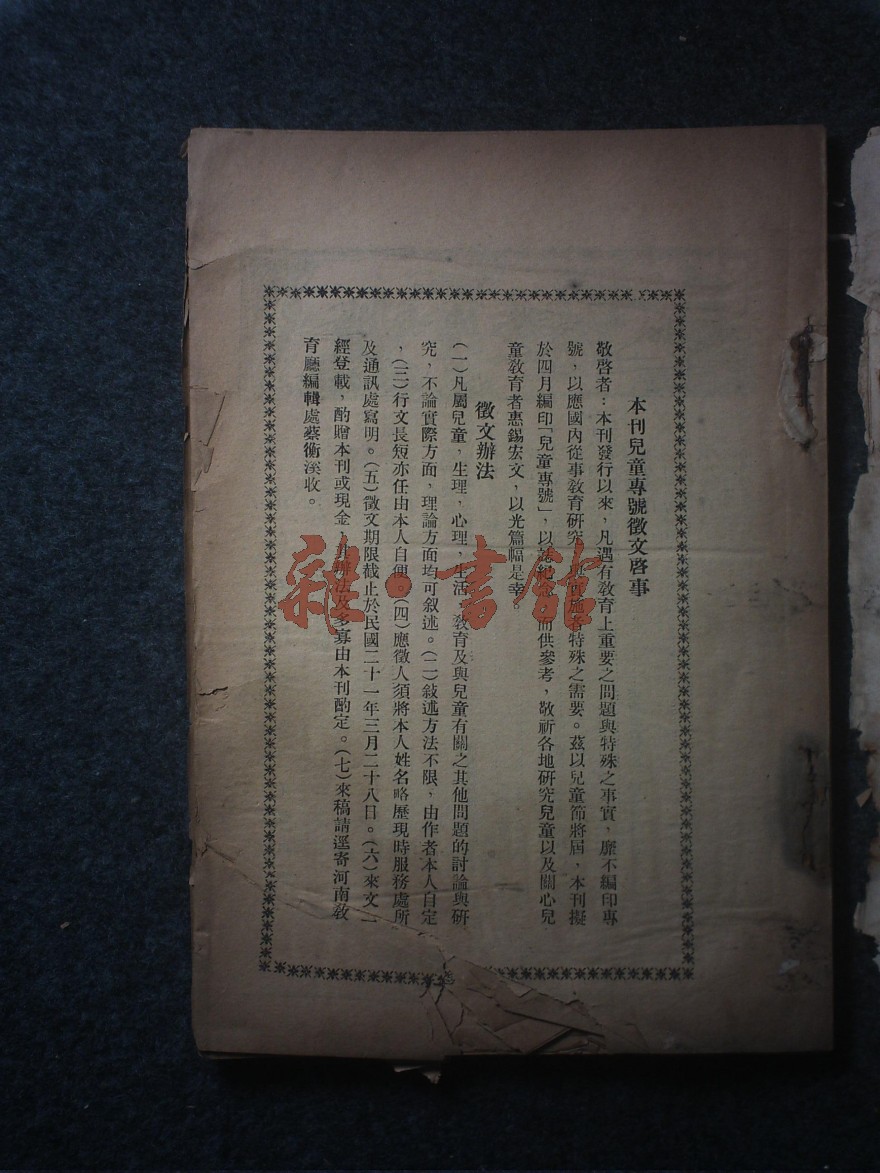 本刊兒童專號徵文啓事
敬啓者：本刊發行以來，凡遇有敎育上重要之問題與特殊之事實，靡不編印專
號，以應國內從事敎育研究實施者特殊之需要。茲以兒童節將屆，本刊擬
於四月編印「兒童專號」，以誌紀而供參考，敬祈各地硏究兒童以及關心兒
童敎育者惠錫宏文，以光篇幅是幸
徵文辦法
（一）凡屬兒童，生理，心理，生活 敎育及與兒童有關之其他問題的討論與硏
究，不論實際方面，理論方面均可叙述。（二）敍述方法不限，由作者本人自定
，（三）行文長短亦任由本人自便。（四）應徵人須將本人姓名略歷現時服務處所
及通訊處寫明。（五）徵文期限截止於民國二十一年三月二十八日。（六）來文一
經登載，酌贈本刊或現金，辦法及多寡由本刊酌定。（七）來稿請逕寄河南敎
育廳編輯處蔡衡溪收。
雜·書館